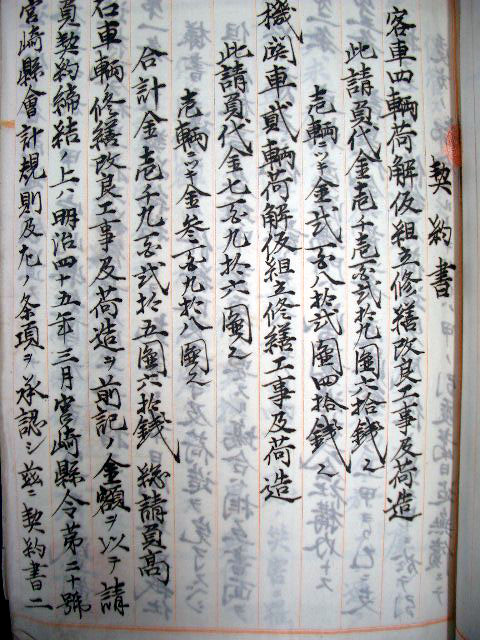 契約書
客車四輌荷解仮組立修繕改良工事及荷造
此請負代金壱千壱百弐拾九圓七拾銭也
壱輌ニツキ金弐百八拾弐圓四拾銭也
機関車貳輌荷解仮組立修繕工事及荷造
此請負代金七百九拾六圓也
壱輌ニツキ金参百九拾八圓也
合計金壱千九百弐拾五圓六拾銭 総請負高
右車輌ノ修繕改良工事及荷造ヲ前記ノ金額ヲ以テ請
負契約締結ノ上ハ明治四十五年三月宮崎縣令第二十號
宮崎縣會計規則及左ノ条項ヲ承認シ茲ニ契約書二